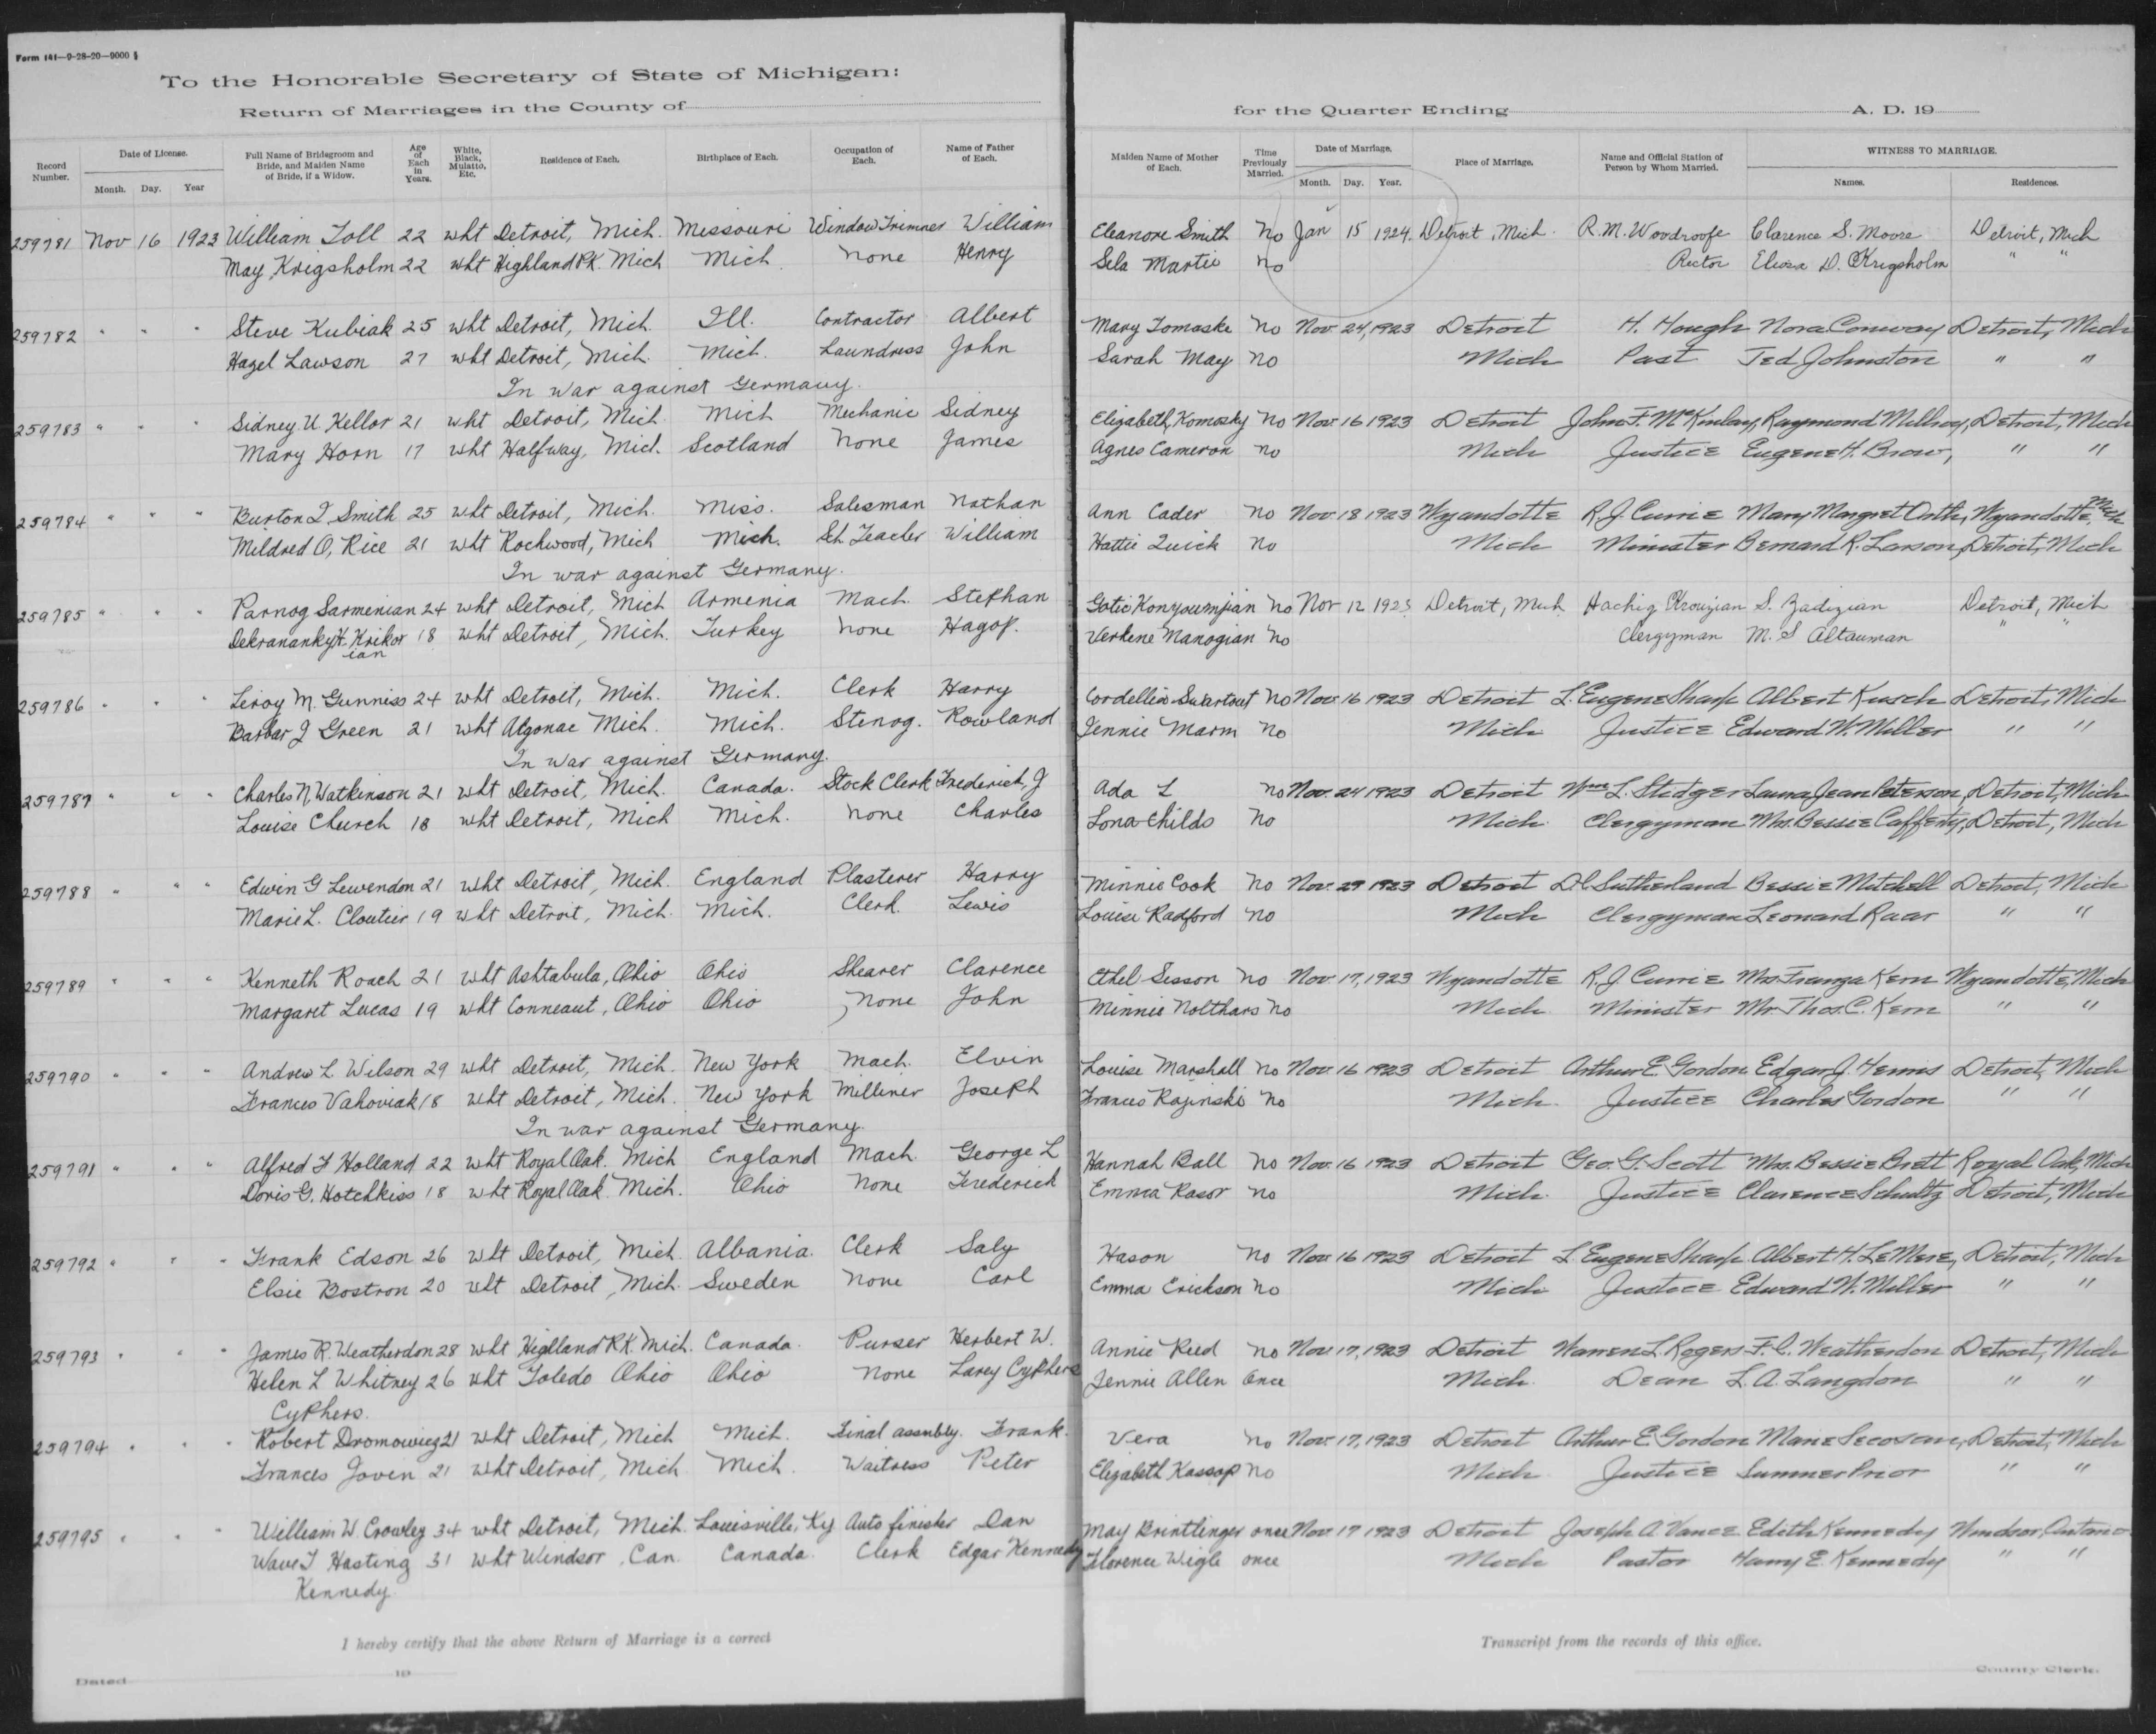 Form 141—9-28-20—9000 §
To the Honorable Secretary of State of Michigan:
Return of Marriages in the County of for the Quarter Ending A. D. 19
Record Number. Date of License. Month. Day. Year Full Name of Bridegroom and Bride, and Maiden Name of Bride, if a Widow. Age of Each in Years. White, Black, Mulatto, Etc. Residence of Each. Birthplace of Each. Occupation of Each. Name of Father of Each. Maiden Name of Mother of Each. Time Previously Married. Date of Marriage. Month. Day. Year. Place of Marriage. Name and Official Station of Person by Whom Married. WITNESS TO MARRIAGE. Names. Residences.
259781 Nov 16 1923 William Toll 22 wht Detroit, Mich. Missouri Window Trimmer William Eleanore Smith No Jan 15 1924. Detroit, Mich. R.M. Woodroofe Clarence S. Moore Detroit, Mich
May Krigsholm 22 wht Highland Pk. Mich Mich. None Henry Sela Martie No Rector D. Krigsholm " "
259782 " " " Steve Kubiak 25 wht Detroit, Mich. Ill. Contractor Albert Mary Tomaske No Nov. 24, 1923 Detroit H. Hough Nora Conway Detroit, Mich
Hazel Lawson 27 wht Detroit, Mich. Mich. Laundress John Sarah May No Mich Past Ted Johnston " "
In war against Germany.
259783 " " " Sidney U. Kellor 21 wht Detroit, Mich. Mich Mechanic Sidney Elizabeth Komosky No Nov. 16 1923 Detroit John F. McKinlay, Raymond Millroy, Detroit, Mich
Mary Horn 17 wht Halfway, Mich. Scotland None James Agnes Cameron No Mich Justice Eugene H. Brow, " "
259784 " " " Burton I. Smith 25 wht Detroit, Mich. Miss. Salesman Nathan Ann Cader No Nov. 18 1923 Wyandotte R.J. Currie Mary Margret Orth, Wyandotte, Mich
Mildred O. Rice 21 wht Rockwood, Mich Mich. Sch Teacher William Hattie Quick No Mich Minister Bernard R. Larson, Detroit, Mich
In war against Germany.
259785 " " " Parnog Sarmenian 24 wht Detroit, Mich Armenia Mach. Stephan Gotic Konyoumjian No Nov 12 1923 Detroit, Mich Hachig Krouzian S. Zadizian Detroit, Mich
Dekrananky H. Krikor 18 wht Detroit, Mich. Turkey None Hagop. Verkene Manogian No Clergyman M. S Altauman " "
ian
259786 " " " Leroy M. Gunniss 24 wht Detroit, Mich. Mich. Clerk Harry Cordellia Swartout No Nov. 16 1923 Detroit L. Eugene Sharp Albert Kusch Detroit, Mich
Barbar J Green 21 wht Algonac Mich. Mich. Stenog. Rowland Jennie Marm No Mich Justice Edward W. Miller " "
In war against Germany.
259787 " " " Charles N. Watkinson 21 wht Detroit, Mich. Canada. Stock Clerk Frederich J Ada L No Nov. 24 1923 Detroit Wm L. Stidger Laura Jean Peterson, Detroit, Mich
Louise Church 18 wht Detroit, Mich Mich. None Charles Lona Childs No Mich. Clergyman Mrs. Bessie Cafferty, Detroit, Mich
259788 " " " Edwin G Lewendon 21 wht Detroit, Mich. England Plasterer Harry Minnie Cook No Nov. 29 1923 Detroit D.C. Sutherland Bessie Mitchell Detroit, Mich
Marie L. Cloutier 19 wht Detroit, Mich. Mich. Clerk. Lewis Louise Radford No Mich Clergyman Leonard Raar " "
259789 " " " Kenneth Roach 21 wht Ashtabula, Ohio Ohio Shearer Clarence Ethel Sisson No Nov. 17, 1923 Wyandotte R.J. Currie Mrs. Franza Kern Wyandotte, Mich
Margaret Lucas 19 wht Conneaut, Ohio Ohio None John Minnie Notthars No Mich. Minister Mr. Thos. C. Kern " "
259790 " " " Andrew L. Wilson 29 wht Detroit, Mich. New York Mach. Elvin Louise Marshall No Nov. 16 1923 Detroit Arthur E. Gordon Edgar J. Hennis Detroit, Mich
Frances Vahoviak 18 wht Detroit, Mich. New York Milliner Joseph Frances Rajinski No Mich. Justice Charles Gordon " "
In war against Germany.
259791 " " " Alfred F Holland 22 wht Royal Oak. Mich England Mach. George L Hannah Ball No Nov. 16 1923 Detroit Geo. G. Scott Mrs. Bessie Brett Royal Oak, Mich
Doris G. Hotchkiss 18 wht Royal Oak Mich. Ohio None Frederick Emma Rasor No Mich. Justice Clarence Schultz Detroit, Mich
259792 " " " Frank Edson 26 wht Detroit, Mich. Albania. Clerk Saly Hason No Nov. 16 1923 Detroit L. Eugene Sharp Albert H. LeMere, Detroit, Mich
Elsie Bostron 20 wht Detroit, Mich. Sweden None Carl Emma Erickson No Mich. Justice Edward W. Miller " "
259793 " " " James R. Weatherdon 28 wht Highland Pk. Mich. Canada. Purser Herbert W. Annie Reed No Nov. 17, 1923 Detroit Warren L Rogers F. C. Weatherdon Detroit, Mich
Helen L Whitney 26 wht Toledo Ohio Ohio None Larey Cyphers Jennie Allen Once Mich. Dean L. A. Langdon " "
Cyphers.
259794 " " " Robert Dromowieg 21 wht Detroit, Mich Mich. Final assmbly. Frank. Vera No Nov. 17, 1923 Detroit Arthur E Gordon Marie Detroit, Mich
Frances Joven 21 wht Detroit, Mich Mich. Waitress Peter Elizabeth Kassop No Mich Justice Summer Prior " "
259795 " " " William W. Crowley 34 wht Detroit, Mich. Louisville, Ky Auto finisher Dan May Brintlinger once Nov. 17 1923 Detroit Joseph A Vance Edith Kennedy Windsor, Ontario
Wave T Hasting 31 wht Windsor, Can. Canada. Clerk Edgar Kennedy Florence Wigle once Mich Pastor Harry E. Kennedy " "
Kennedy
I hereby certify that the above Return of Marriage is a correct Transcript from the records of this office.
Dated 19 County Clerk.